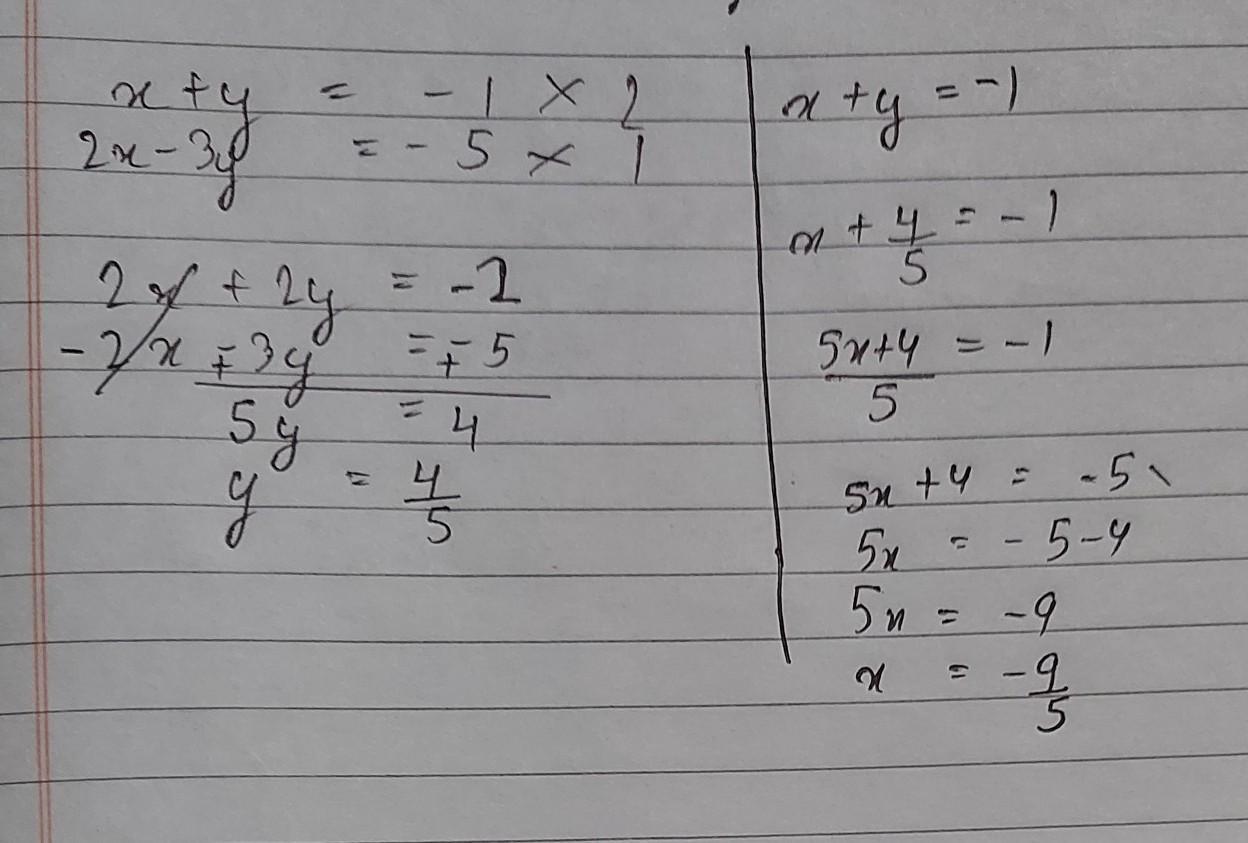 x + y = -1 × 2
2x - 3y = -5 × 1
2x + 2y = -2
-2x ∓ 3y = ∓ 5
5y = 4
y = 4/5
x + y = -1
x + 4/5 = -1
5x+4/5 = -1
5x + 4 = -5
5x = -5-4
5x = -9
x = -9/5